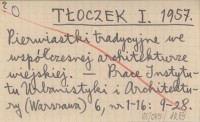 TŁOCZEK I. 1957.
Pierwiastki tradycyjne we
współczesnej architekturze
wiejskiej. — Prace Instytu-
tu Urbanistyki i Architektu-
ry (Warszawa) 6, nr 1-16: 9-28.